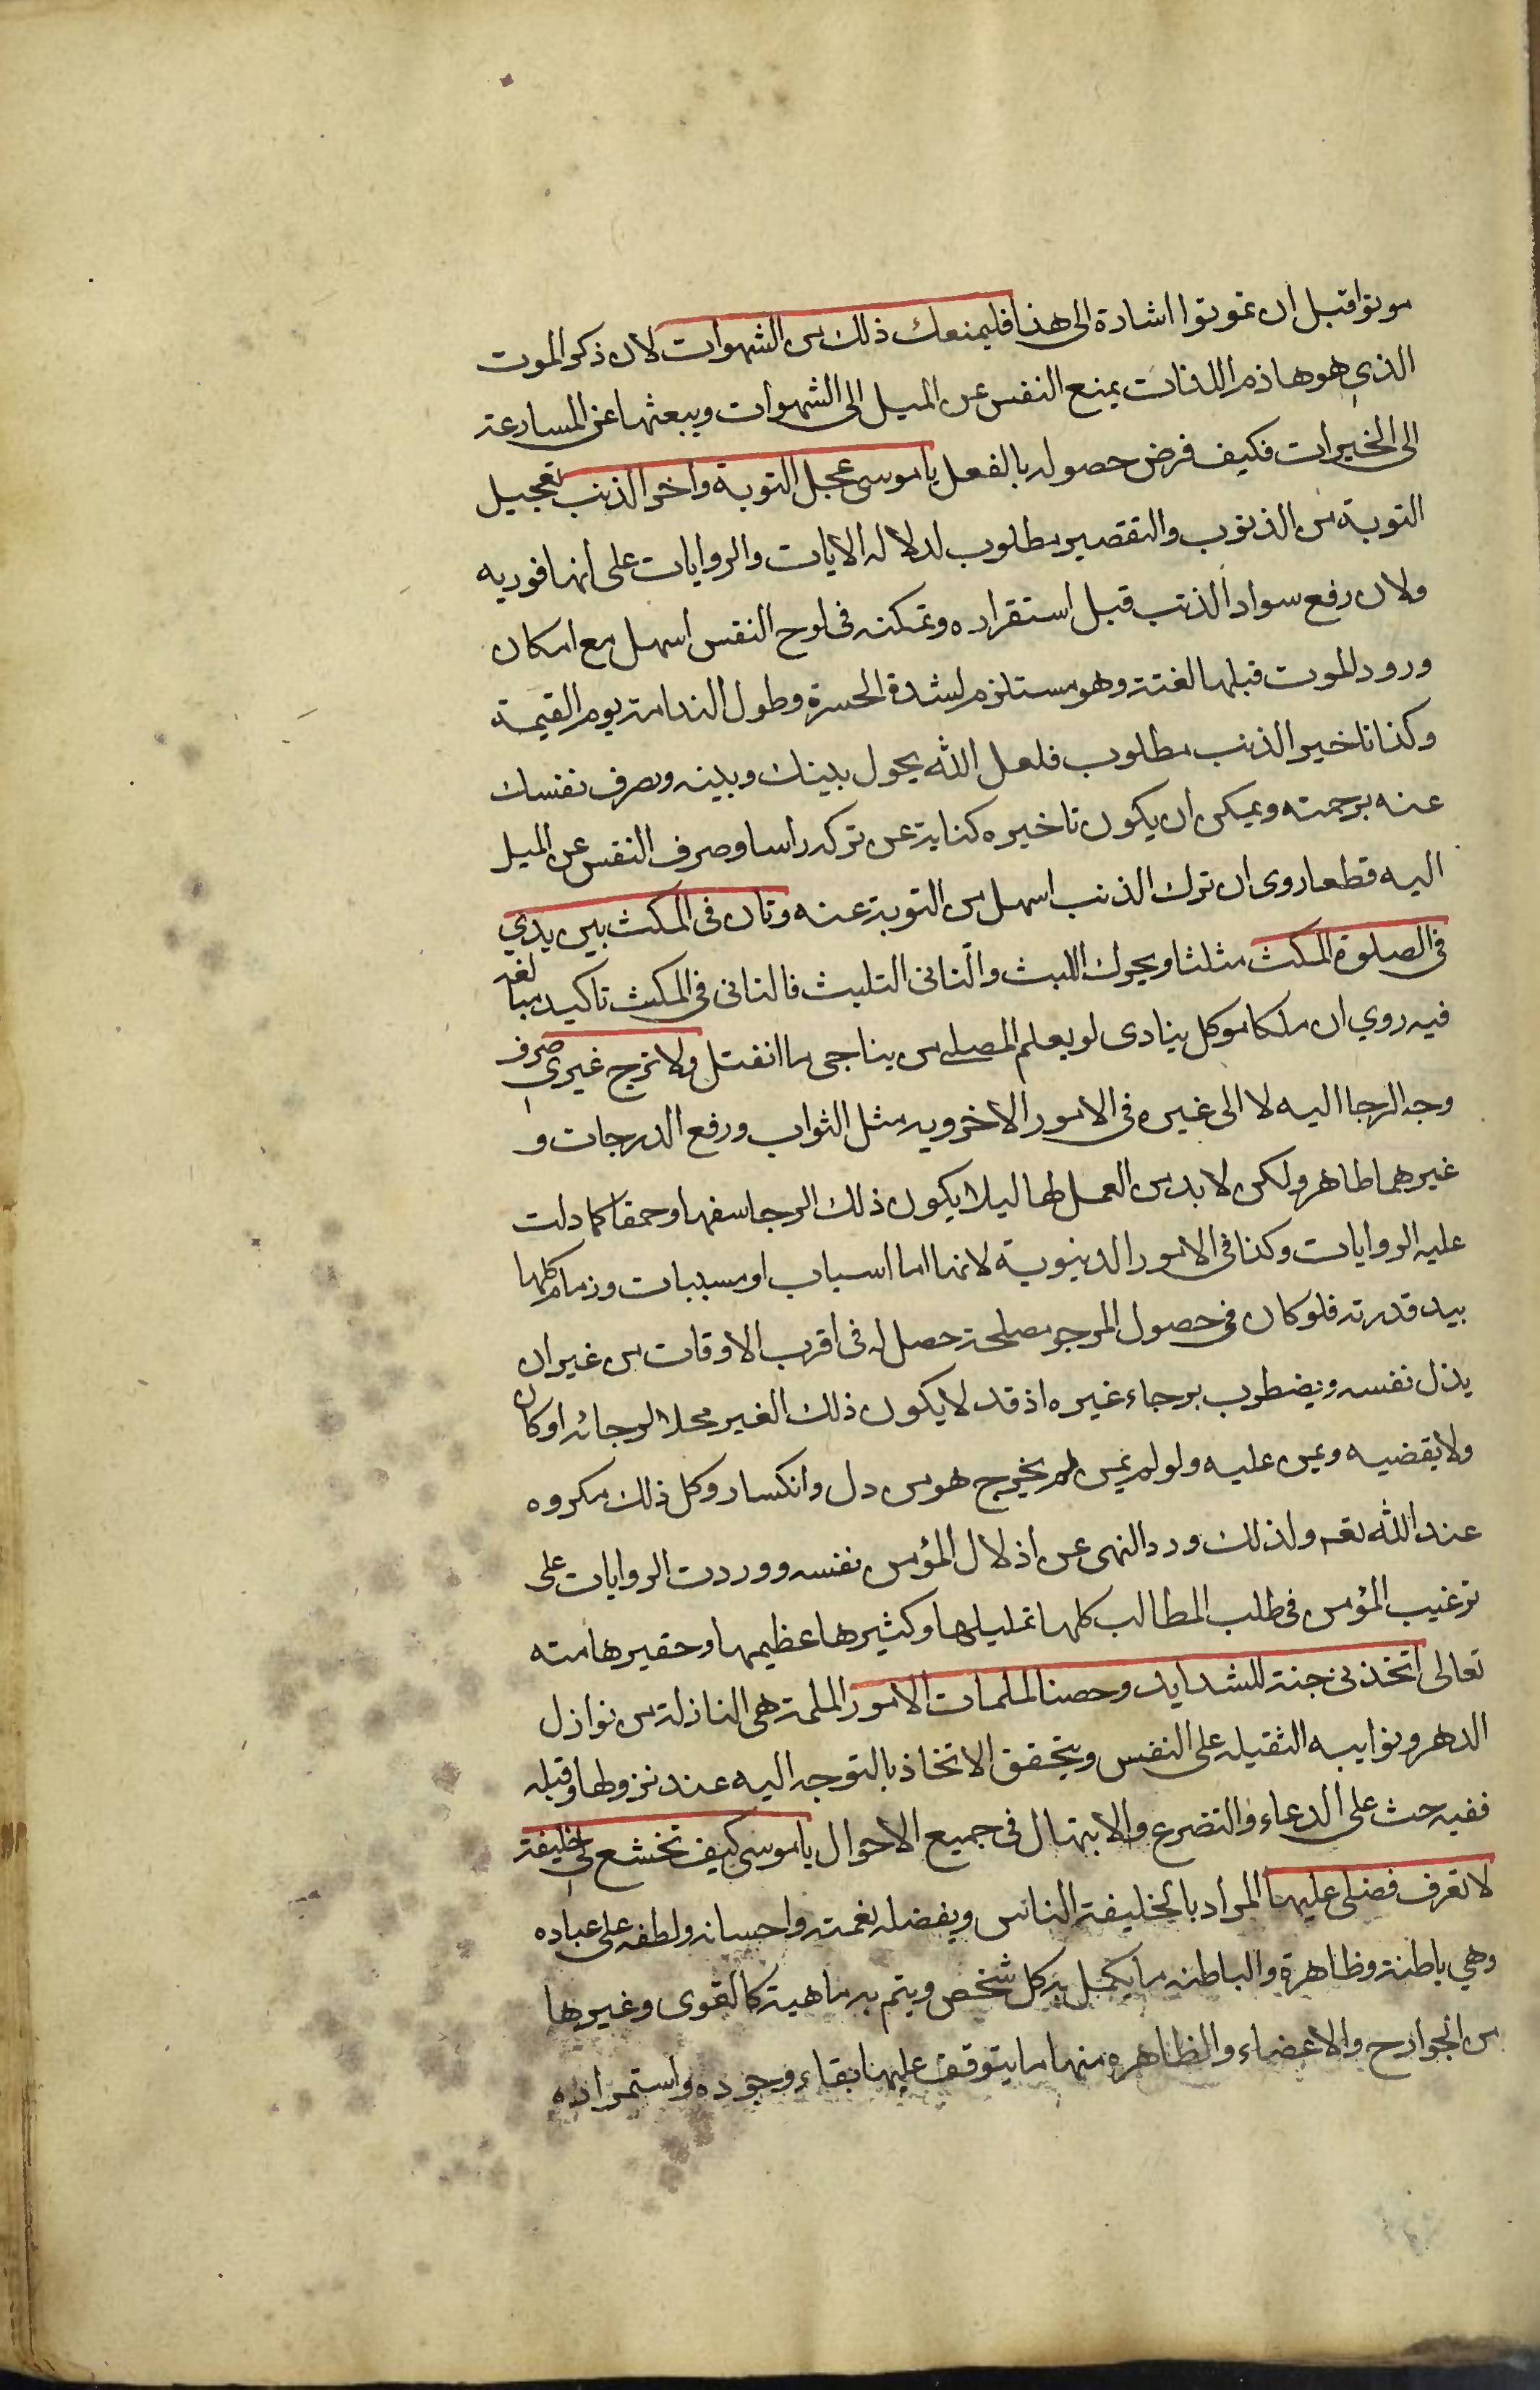 موتوا قبل ان تموتوا اشارة الى هذا فليمنعك ذلك من الشهوات لان ذكر الموت
الذي هو هاذم اللذات يمنع النفس عن الميل الى الشهوات ويبعثها عن المسارعة
الى الخيرات فكيف فرض حصوله بالفعل يا موسى عجل التوبة واخر الذنب تعجيل
التوبة من الذنوب والتقصير مطلوب لدلاله الايات والروايات على انها فوريه
ولان رفع سواد الذنب قبل استقراره وتمكنه في لوح النفس اسهل مع امكان
ورود الموت قبلها لغتة وهو مستلزم لشدة الحسرة وطول الندامة يوم القيمة
وكذا تاخير الذنب مطلوب فلعل الله يحول بينك وبينه وصرف نفسك
عنه برحمته ويمكن ان يكون تاخيره كناية عن تركه راسا وصرف النفس عن الميل
اليه قطعا روى ان ترك الذنب اسهل من التوبة عنه وتان في المكث بين يدي
في الصلوة المكث مثلثا ويحرك اللبث والتانى التلبث فالتانى في المكث تاكيد مبالغه
فيه روي ان ملكا موكل ينادى لو يعلم المصلى من يناجى ما انفتل ولا ترج غيري صرف
وجه الرجا اليه لا الى غيره في الامور الاخرويه مثل الثواب ورفع الدرجات و
غيرهما ظاهر ولكن لا بد من العمل لها ليلا يكون ذلك الرجا سفها وحمقا كما دلت
عليه الروايات وكذا في الامور الدنيوية لانها اما اسباب او مسببات وزمام كلها
بيد قدرته فلو كان في حصول المرجو مصلحة حصل له في اقرب الاوقات من غير ان
يذل نفسه ويضطرب برجاء غيره اذ قد لا يكون ذلك الغير محلا لرجائه او كان
ولا يقضيه ويمن عليه ولو لم يمن لم يخرج هو من دل وانكسار وكل ذلك مكروه
عند الله تعم ولذلك ورد النهى عن اذلال المؤمن نفسه ووردت الروايات على
ترغيب المؤمن في طلب المطالب كلها قليلها وكثيرها عظيمها وحقيرها منه
تعالى اتخذنى جنة للشدايد وحصنا لملمات الامور الملمة هى النازلة من نوازل
الدهر ونوايبه الثقيله على النفس ويتحقق الاتخاذ بالتوجه اليه عند نزولها وقبله
ففيه حث على الدعاء والتضرع والابتهال في جميع الاحوال يا موسى كيف تخشع لي خليفة
لا تعرف فضلى عليها المراد بالخليفة الناس وبفضله نعمته واحسانه ولطفه على عباده
وهي باطنة وظاهرة والباطنه ما يكمل به كل شخص ويتم به ماهية كالقوى وغيرها
من الجوارح والاعضاء والظاهره منها ما يتوقف عليها بقاء وجوده واستمراره